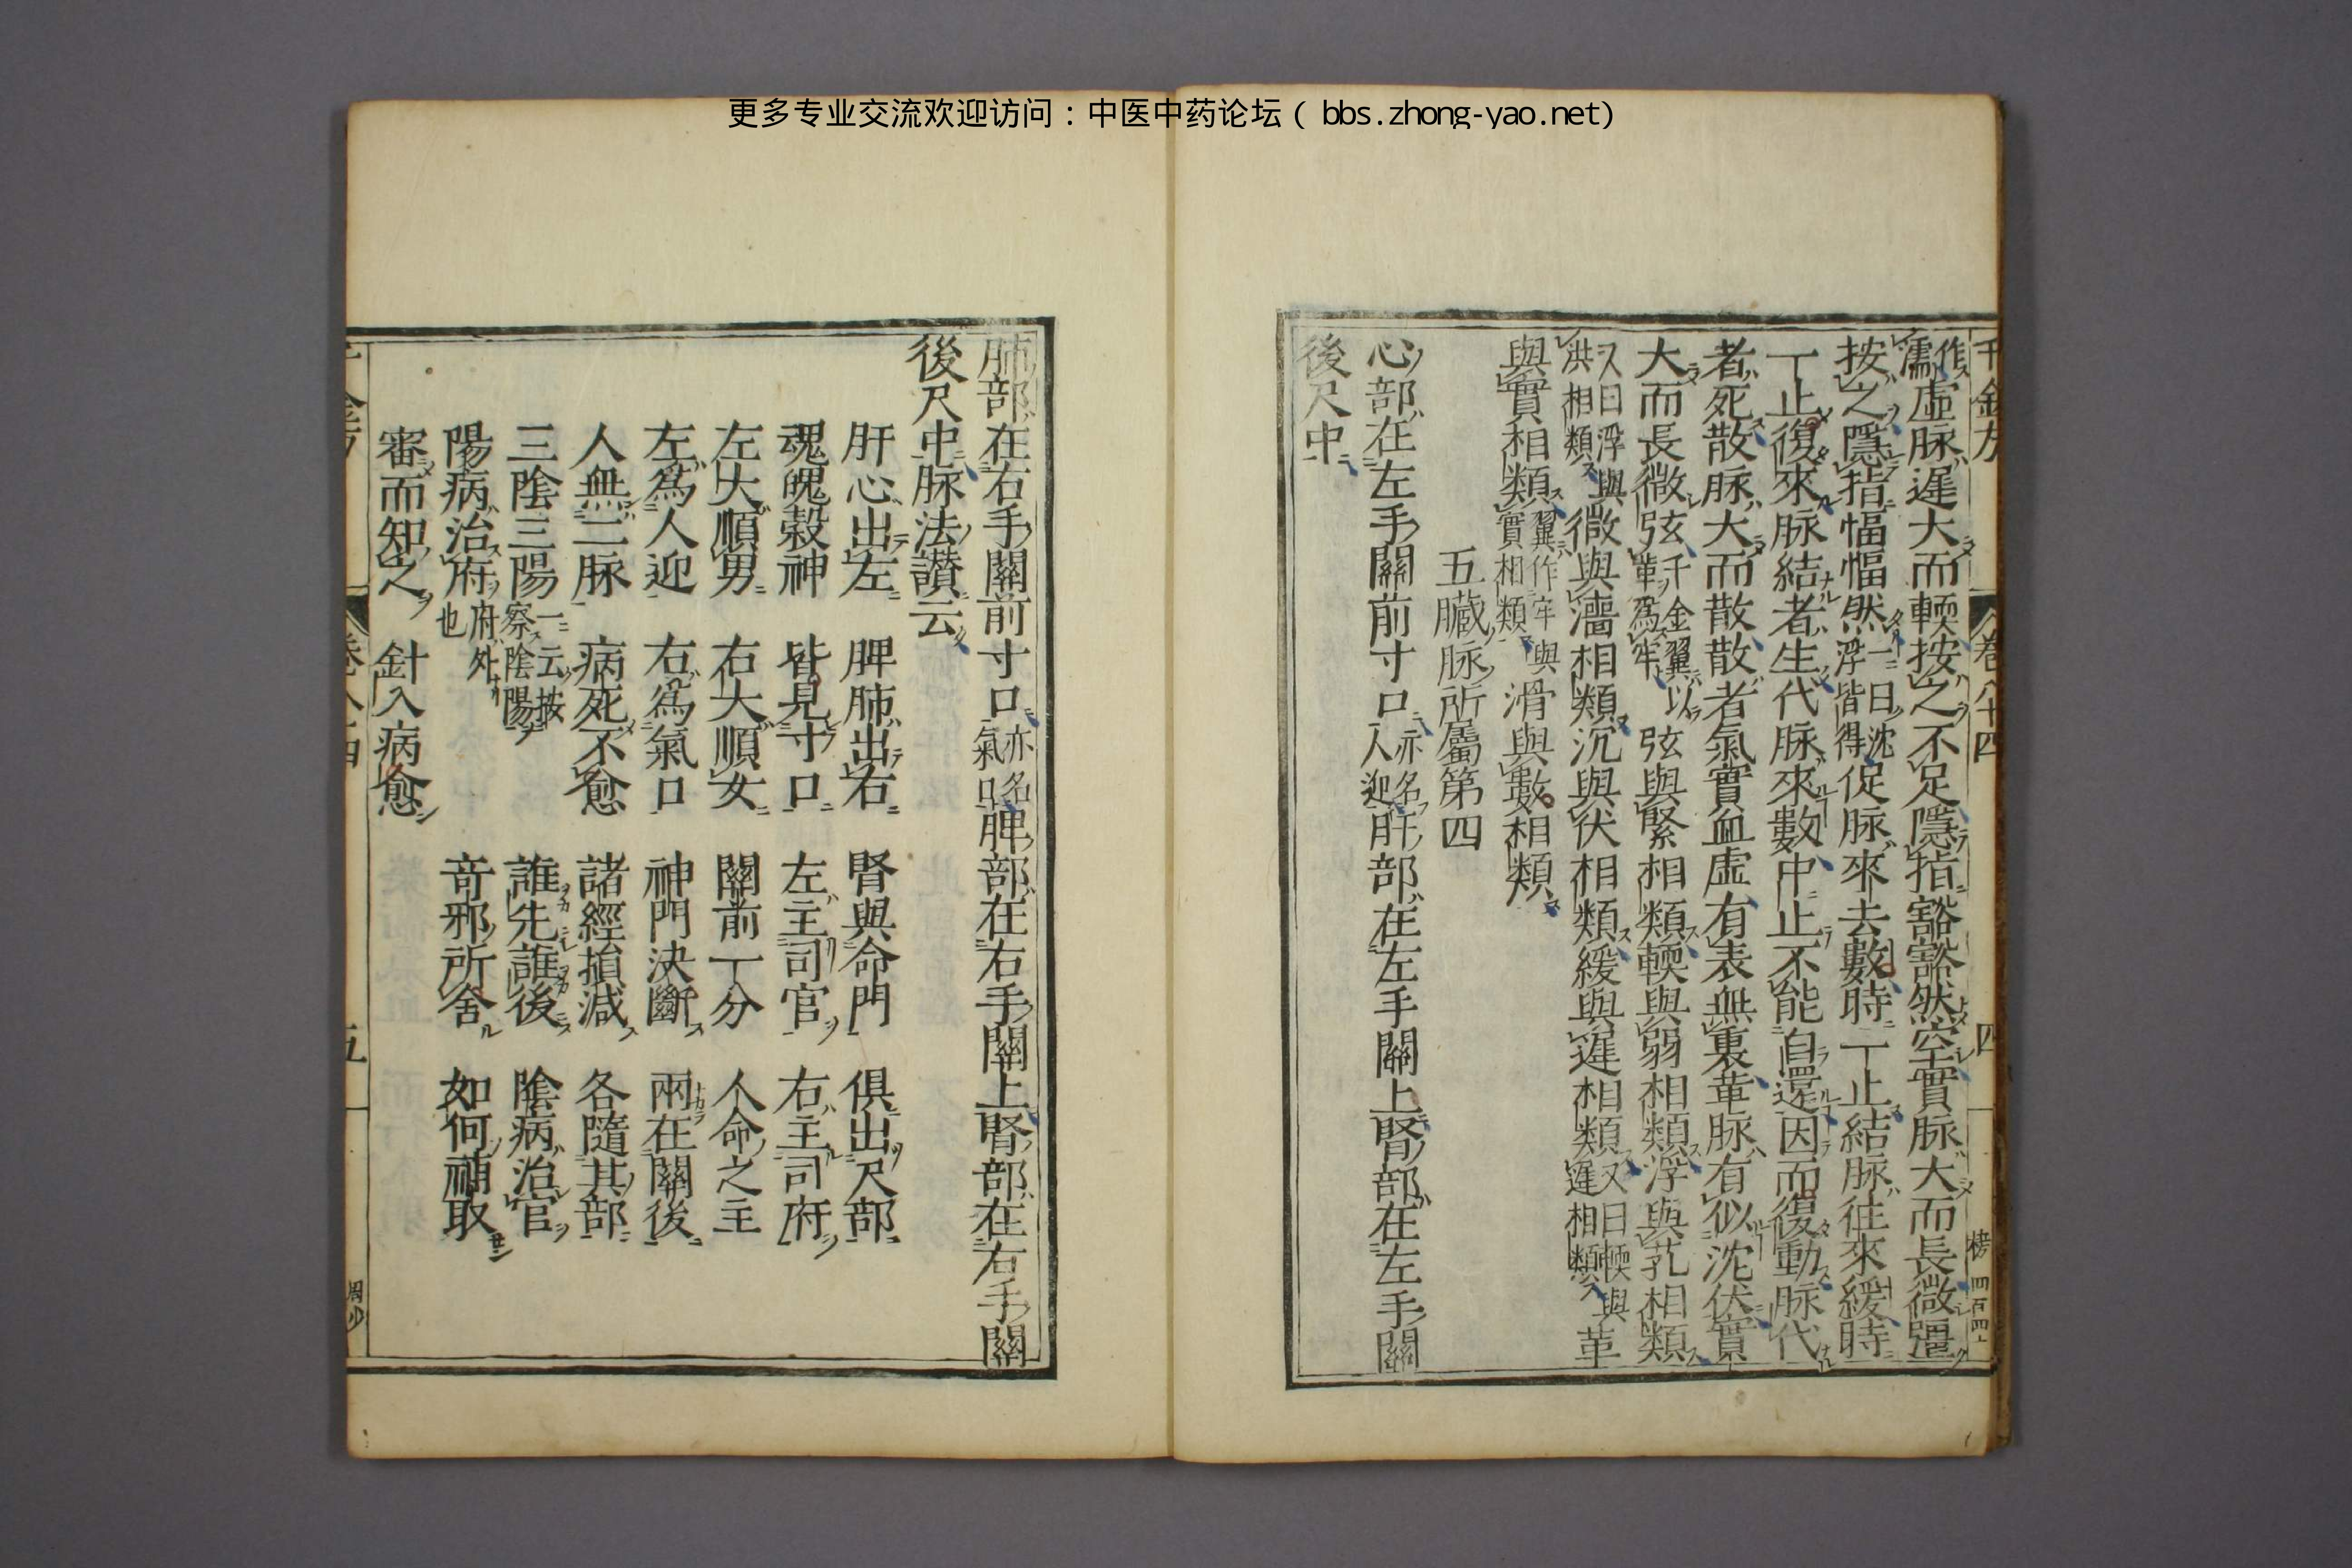 更多专业交流欢迎访问：中医中药论坛（bbs.zhong-yao.net）
千金方 卷八十四 四
作濡虛脉遲大而輭按之不足隱指豁豁然空實脉大而長微彊
按之隱指愊愊然一曰沈浮皆得促脉來去數時一止結脉往來緩時
一止復來脉結者生代脉來數中止不能自還因而復動脉代
者死散脉大而散散者氣實血虛有表無裏革脉有似沈伏實
大而長微弦千金翼以革爲牢弦與緊相類輭與弱相類浮與芤相類
又曰浮與洪相類微與濇相類沉與伏相類緩與遲相類又曰輭與遲相類革
與實相類翼作牢與實相類滑與數相類
五臟脉所屬第四
心部在左手關前寸口亦名人迎肝部在左手關上腎部在左手關
後尺中
肺部在右手關前寸口亦名氣口脾部在右手關上腎部在右手關
後尺中脉法讚云
肝心出左 脾肺出右 腎與命門 俱出尺部
魂魄榖神 皆見寸口 左主司官 右主司府
左大順男 右大順女 關前一分 人命之主
左爲人迎 右爲氣口 神門決斷 兩在關後
人無二脉 病死不愈 諸經損減 各隨其部
三陰三陽一云按察陰陽 誰先誰後 陰病治官
陽病治府府外也 奇邪所舍 如何補取
審而知之 針入病愈
五